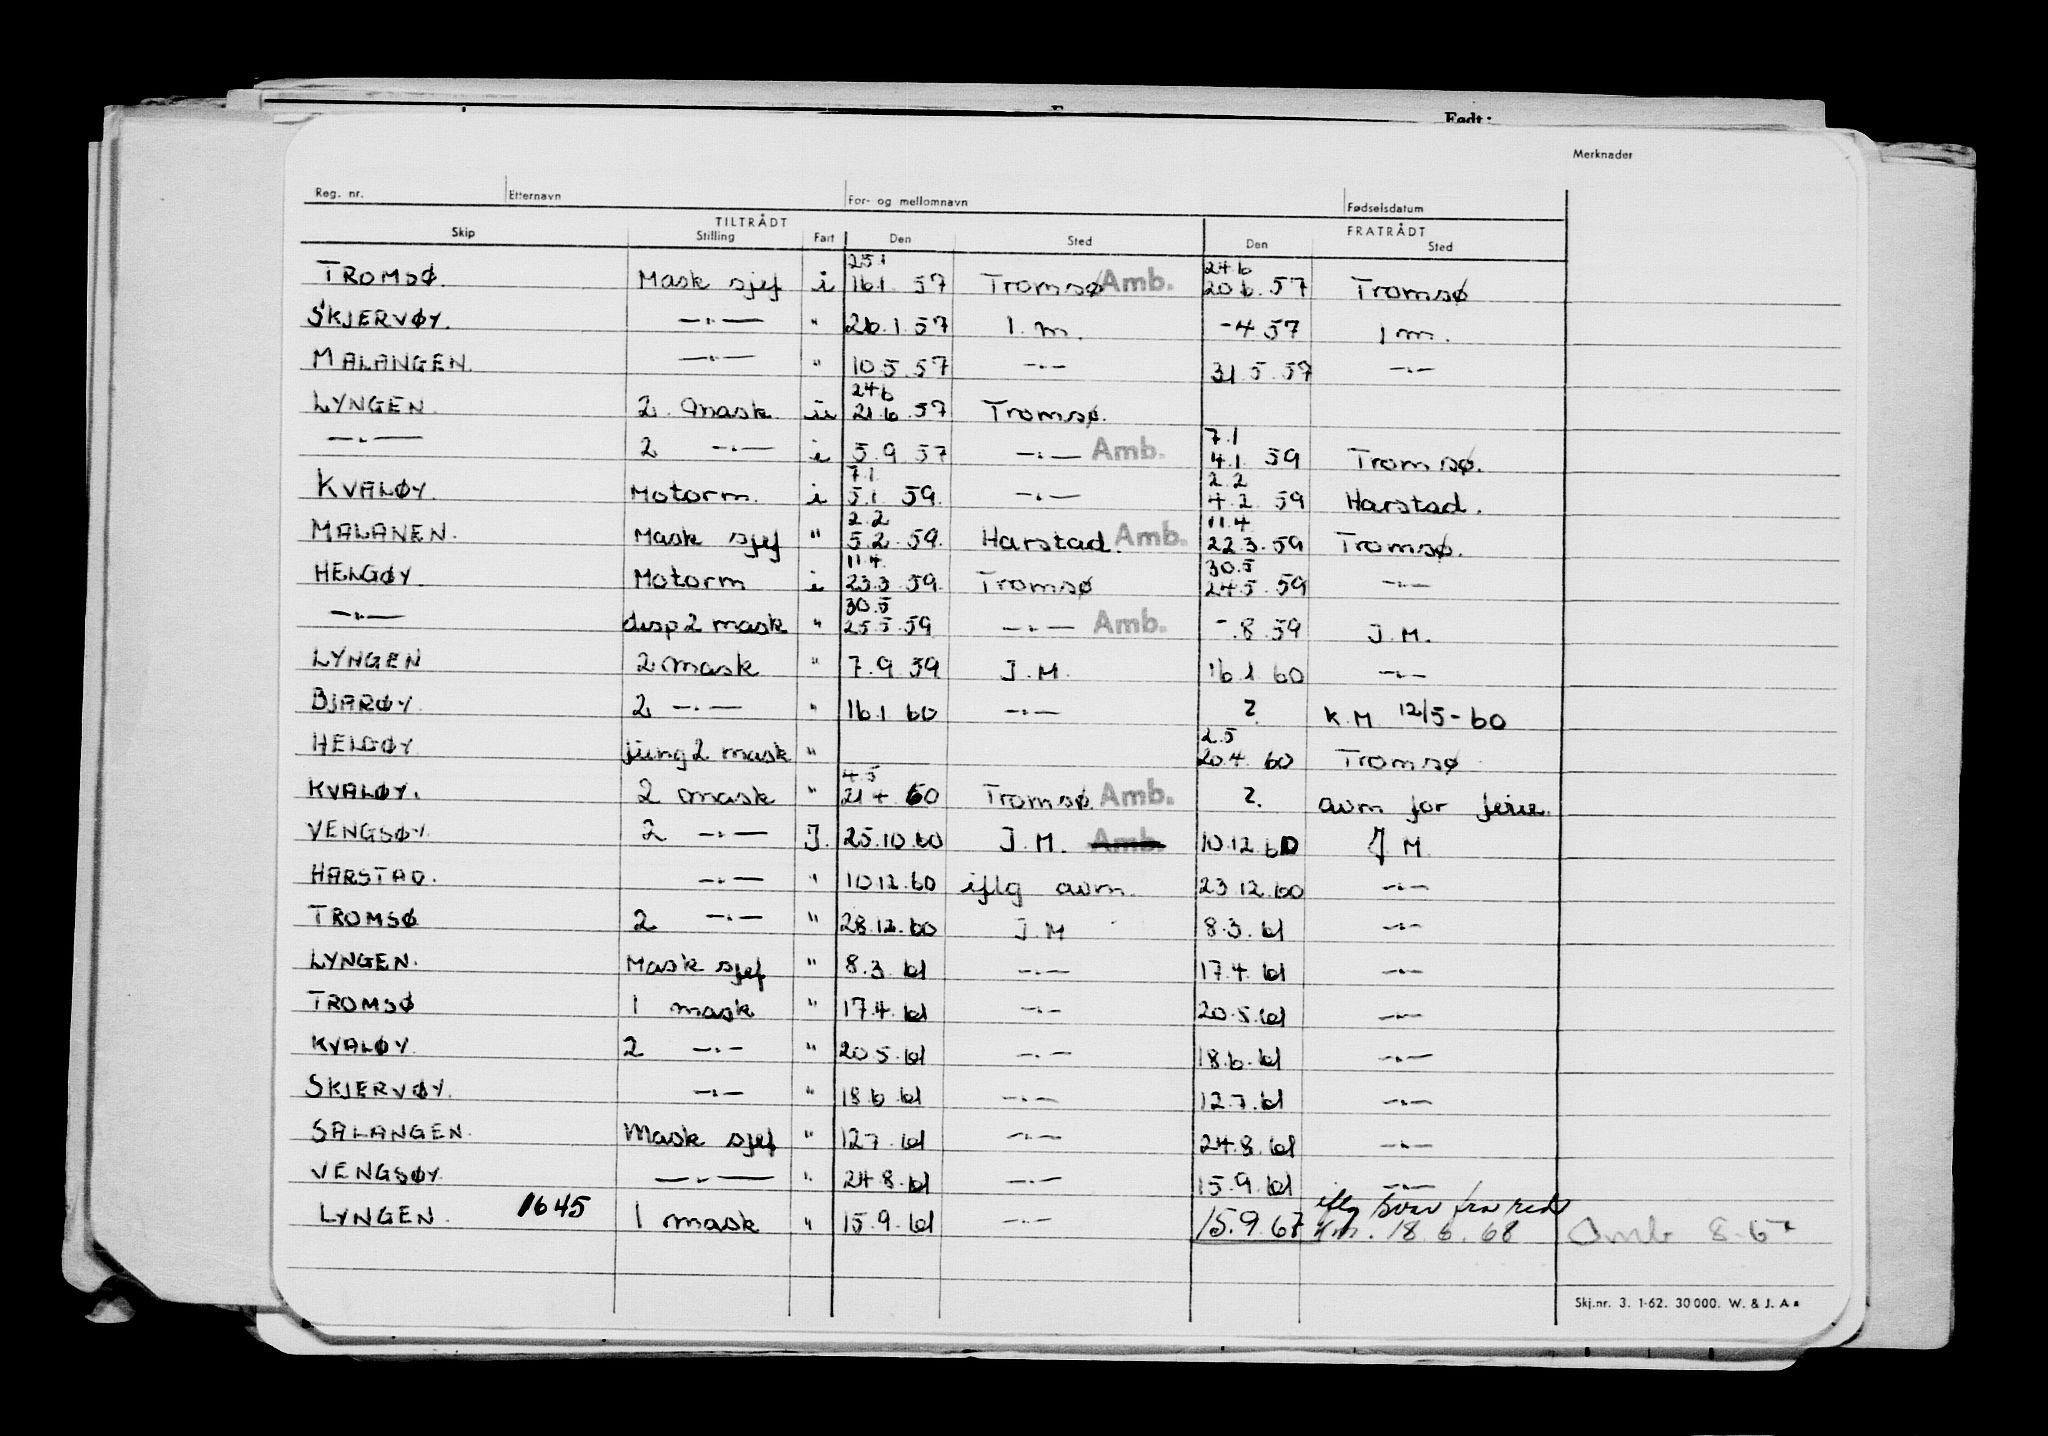 Født:
Merknader
Reg. nr. Etternavn For- og mellomnavn Fødselsdatum
TILTRÅDT FRATRÅDT
Skip Stilling Fart Den Sted Den Sted
25.1 24.6
TROMSØ. Mask sjef i 16.1 57 Tromsø Amb. 20.6.57 Tromsø
SKJERVØY. —.— " 26.1.57 I.m. -4 57 I m.
MALANGEN. —.— " 10.5.57 —.— 31.5.57 —.—
24.6
LYNGEN. 2. mask. u 21.6.57 Tromsø.
7.1
—.— 2 —.— i 5.9.57 —.— Amb. 4.1. 59 Tromsø.
7.1. 2.2
KVALØY. Motorm. i 5.1. 59. —.— 4.2 59 Harstad.
2.2 11.4
MALANEN. Mask sjef " 5.2.59. Harstad. Amb. 22.3.59 Tromsø.
11.4. 30.5
HELGØY. Motorm i 23.3.59. Tromsø 24.5.59 —.—
30.5
—.— disp 2 mask " 25.5.59 —.— Amb. -.8.59 J.M.
LYNGEN 2 mask " 7.9.59 J.M. 16.1 60 —.—
BJARØY. 2 —.— " 16.1 60 —.— ? K.M 12/5-60
2.5
HELGØY jung 2 mask " 20.4.60 Tromsø
4.5
KVALØY. 2 mask " 21 4 60 Tromsø. Amb. ?. avm for ferie.
VENGSØY. 2 —.— J. 25.10.60 J.M. Amb. 10.12.60 J.M
HARSTAD. —.— " 10.12.60 iflg avm. 23.12.60 —.—
TROMSØ 2 —.— " 28.12.60 J.M 8.3.61 —.—
LYNGEN. Mask sjef " 8.3.61 —.— 17.4.61 —.—
TROMSØ 1 mask " 17.4.61 —.— 20.5.61 —.—
KVALØY. 2 —.— " 20.5.61 —.— 18.6.61 —.—
SKJERVØY. —.— " 18.6.61 —.— 12.7.61 —.—
SALANGEN. Mask sjef " 12.7.61 —.— 24.8.61 —.—
VENGSØY. —.— " 24.8.61 —.— 15.9.61 —.—
iflg svar fra red
LYNGEN. 1645 1 mask " 15.9.61 —.— 15.9.67 18.6.68 Amb 8.67
Skj.nr. 3. 1-62. 30 000. W. & J. A s